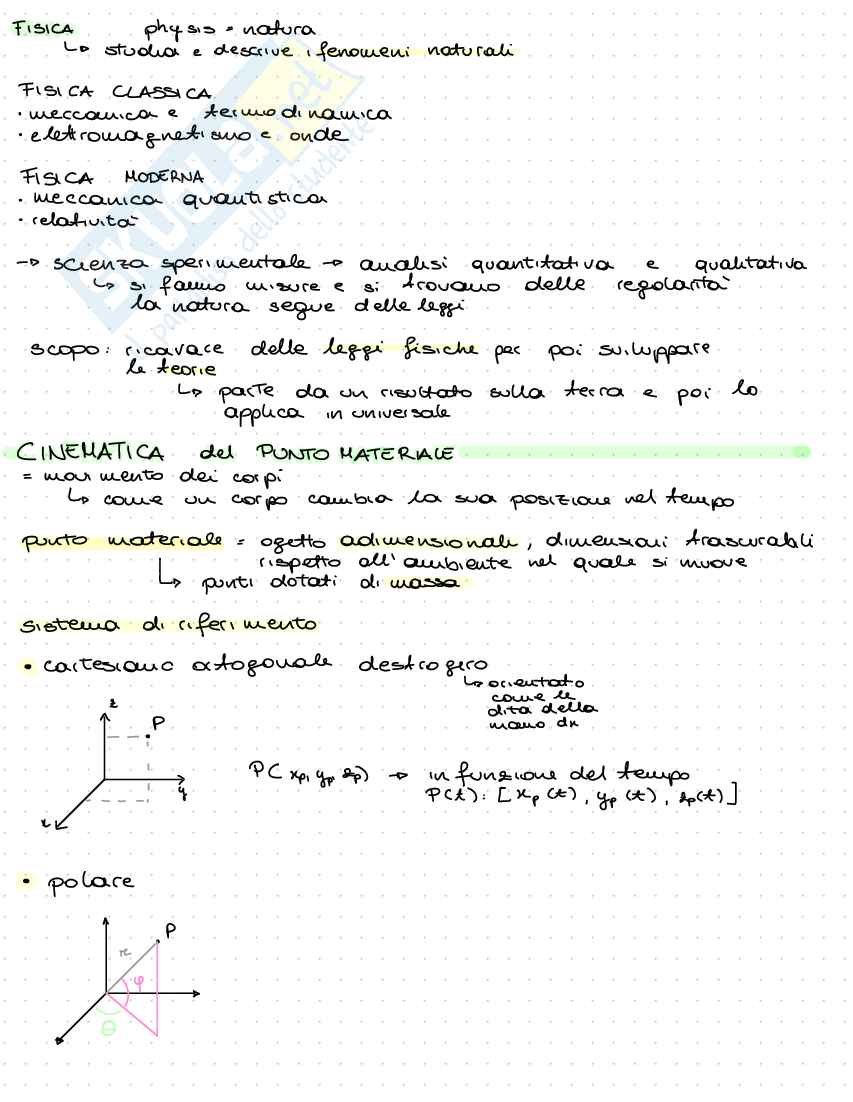 FISICA physis = natura
↳ studia e descrive i fenomeni naturali
FISICA CLASSICA
• meccanica e termodinamica
• elettromagnetismo e onde
FISICA MODERNA
• meccanica quantistica
• relatività
→ scienza sperimentale → analisi quantitativa e qualitativa
↳ si fanno misure e si trovano delle regolarità
la natura segue delle leggi
scopo: ricavare delle leggi fisiche per poi sviluppare
le teorie
↳ parte da un risultato sulla terra e poi lo
applica in universale
CINEMATICA del PUNTO MATERIALE
= movimento dei corpi
↳ come un corpo cambia la sua posizione nel tempo
punto materiale = ogetto adimensionale, dimensioni trascurabili
rispetto all'ambiente nel quale si muove
↳ punti dotati di massa
sistema di riferimento
• cartesiano ortogonale destrogiro
↳ orientato
come le
dita della
mano dx
z
P
y
x
P(xp, yp, zp) → in funzione del tempo
P(t): [xp(t), yp(t), zp(t)]
• polare
P
r
φ
θ
SKUOLA.net
il paradiso dello studente